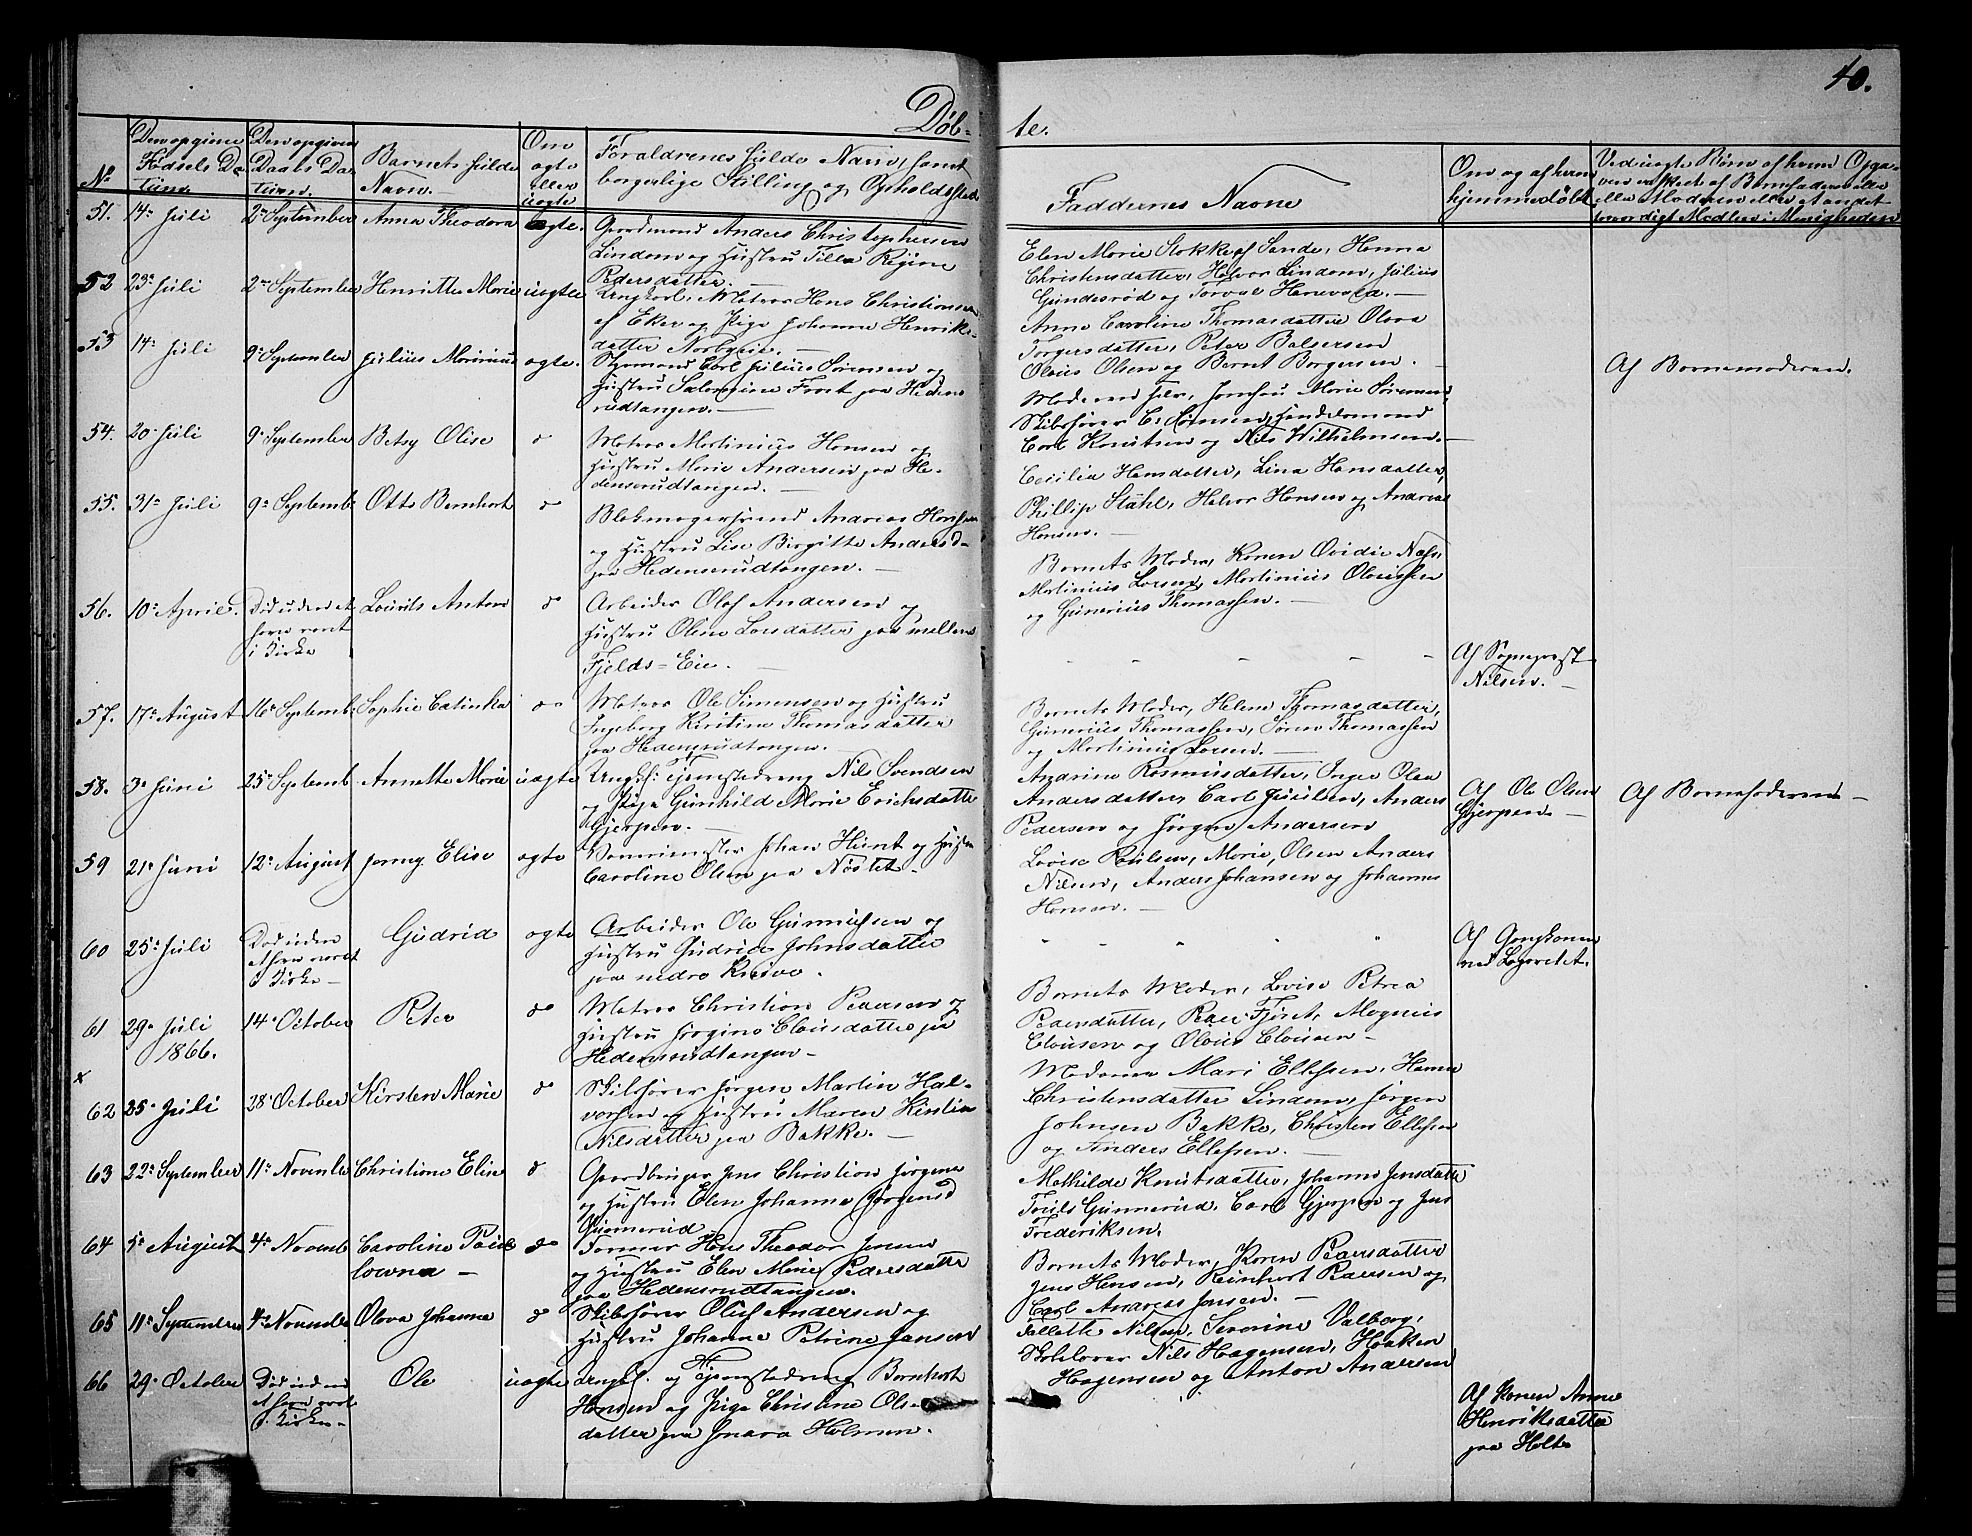 40.
Døb-
te.
No
Den opgivne Fødsels Da-
tum
Den opgivne
Daabs Da-
tum.
Barnets fulde
Navn.
Om
ægte
eller
uægte
Forældrenes fulde Navn, samt
borgerlige Stilling og Opholdssted
Faddernes Navne
Om og af hvem
hjemmedøbt
51. 14de Juli 2den September Anna Theodora ægte. Gaardmand Anders Christophersen
Lindum og Hustru Tilla Regine
Pedersdatter.
Elen Marie Stokke af Sande, Hanna
Christensdatter, Halvor Lindum, Julius
Gundesrød og Torval Herevold.
52 23de Juli 2den September Henriette Marie uægte Ungkarl, Matros Hans Christiansen
af Eker og Pige Johanne Henriks-
datter
Anne Caroline Thomasdatter Olava
Torgersdatter, Peter Balsersen
Olaus Olsen og Bernt Borgersen.
Af Barnemoderen.
53 14de Juli 9de September Julius Marinius ægte. Styrmand Carl Julius Sørensen og
Hustru Salomine Frost paa Hedens-
rudtangen.
Moderen selv, Jomfru Marie Sørensen,
Skibsfører C. Sørensen, Handelsmand
Carl Knutsen og Nils Wilhelmsen.
54. 20de Juli 9de September Betsy Olise do Matros Martinius Hansen og
Hustru Marie Andersen paa He-
densrudtangen.
Cecilia Hansdatter, Lina Hansdatter,
Phillip Ståhl, Halvor Hansen og Andreas
Hansen.
55. 31te Juli 9de Septemb. Otto Bernhart do Blokmagersvend Andreas Hansen
og Hustru Lise Birgitte Andersd-
paa Hedensrudtangen.
Barnets Moder, Karen Ovidie Næss,
Martinius Larsen, Martinius Olavesen
og Gunerius Thomassen.
56. 10de April. Død uden at
have været
i Kirke
Lourits Anton do Arbeider Olaf Andersen og
Hustru Oline Larsdatter paa mellem
Fjelds-Eie.
Af Sogneprest
Nilsen.
57. 17de August 16de Septemb. Sophie Catinka do Matros Ole Simensen og Hustru
Ingeborg Kirstine Thomasdatter
paa Hedensrudtangen.
Barnets Moder, Helene Thomasdatter,
Gunerius Thomassen, Søren Thomassen
og Martinius Larsen.
58. 3de Juni 25de Septemb Annette Marie uægte Ungk: Tjenestedreng Nils Svendsen
og Pige Gunhild Marie Erichsdatter
Gjerpen.
Andrine Rasmusdatter, Inger Olea
Andersdatter, Carl Paulsen, Anders
Pedersen og Jørgen Andersen
Af Ole Olsen
Gjerpen.
Af Barnefaderen
59 21de Juni 12te August Jenny Elise ægte Johan Hunt og Hustru
Caroline Olsen paa Nøstet.
Lovise Poulsen, Marie Olsen Anders
Nilsen, Anders Johansen og Johannes
Hansen.
60 25de Juli Død uden
at have været
i Kirke
Gudrid ægte Arbeider Ole Gunnufsen og
Hustru Gudrid Johnsdatter
paa nedre
Af Gangkonen
ved Lazarettet.
61 29de Juli
1866.
14de October Peter do Matros Christian Pedersen og
Hustru Jørgine Clausdatter paa
Hedensrudtangen
Barnets Moder, Lovise Petrea
Pedersdatter, Peder Fjøset, Magnius
Clausen og Olaus Clausen
x
62 25de Juli 28de October Kirsten Marie do Skibsfører Jørgen Martin Hal-
vorsen og Hustru Maren Kirstine
Nilsdatter paa Bakke.
Madame Mari Ellefsen, Hanna
Christensdatter Lindum, Jørgen
Johnsen Bakke, Christen Ellefsen
og Anders Ellefsen.
63 22de September 11te Novembr Christiane Elise do Gaardbruger Jens Christian Jørgens
og Hustru Elen Johanne Jørgensd
Gunnerud
Mathilde Knutsdatter, Johanne Jensdatter
Gunnerud. Carl Gjerpen og Jens
Frederiksen.
64 5te August 4de Novemb Caroline Paue
lowna
do Former Hans Theodor Jensen
og Hustru Elen Marie Pedersdatter
paa Hedensrudtangen.
Barnets Moder, Karen Pedersdatter
Jens Hansen, Reinhart Pedersen og
Carl Andreas Jensen.
65 11te September 4de November Olava Johanna do Skibsfører Oluf Andersen og
Hustru Johanne Petrine Jansen
Tallette Nilsen, Severine Valborg,
Skolelærer Nils Haagensen, Haaken
Haagensen og Anton Andersen
66 29de October Død uden
at have været
i Kirke
Ole uægte Ungk. og Tjenestedreng Bernhart
Hansen og Pige Christine Ols-
datter paa Holmen.
Af Konen Anne
Henriksdatter
paa Holte